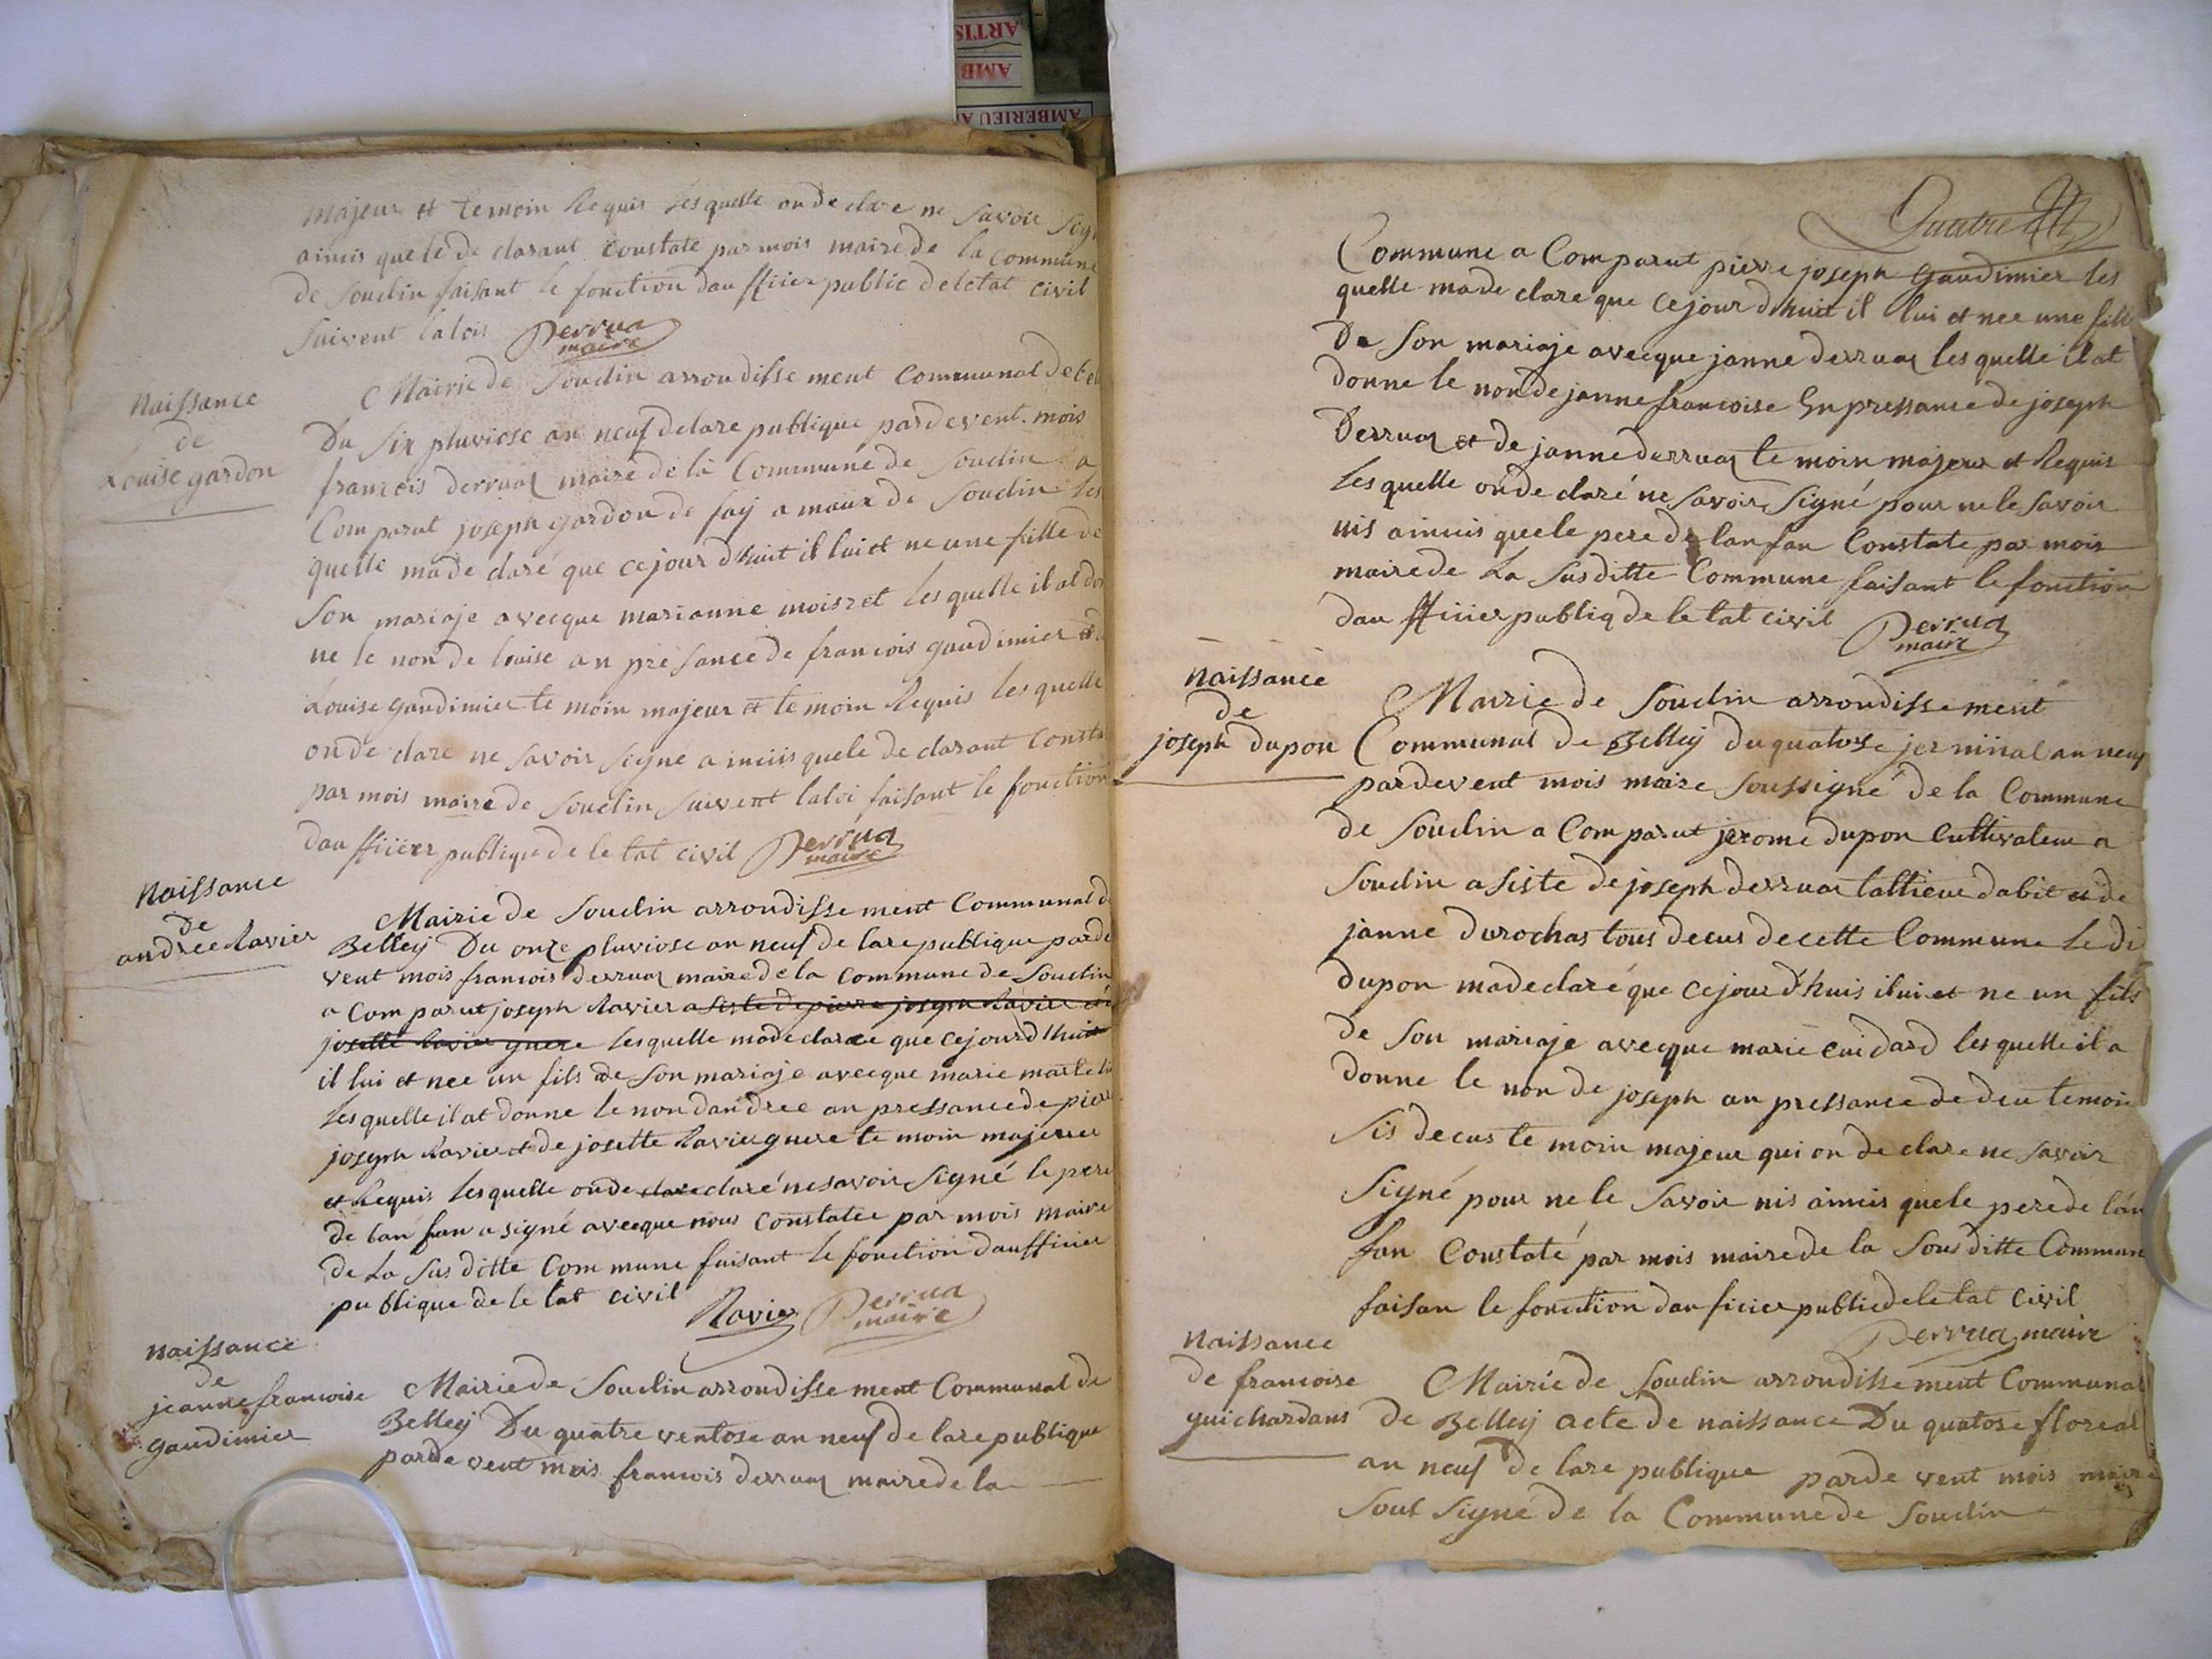 ARTIS
AMB
AMBERIEU A
majeur et temoin Requis les quelle on de clare ne savoir sign
ainsis que le de clarant constate par mois maire de la commune
de Souclin faisant le fonction dau fficier public de letat civil
suivent la lois Derrua
maire
Naissance
de
Louise gardon
Mairie de Souclin arrondisse ment communal de bel
Du six pluviose an neuf de lare publique par devent mois
francois derruaz maire de la Commune de Souclin a
Comparut joseph gardon de fay a maux de Souclin les
quelle ma de claré que ce jour d huit il lui et ne une fille de
Son mariaje avecque marianne moiret les quelle il at don
ne le non de louise an pre sance de francois gaudimier et
Louise gaudimier te moin majeur et te moin Requis les quelle
on de clare ne savoir signe a insis que le de clarant consta
par mois maire de Souclin suivent la loi faisant le fonction
dau fficier publique de le tat civil Derrua
maire
Naissance
de
andree Ravier
Mairie de Souclin arrondisse ment Communal de
Belley Du onze pluviose an neuf de lare publique par de
vent mois francois derruaz maire de la Commune de Souclin
a Com parut joseph Ravier a siste de pierre joseph Ravier et de
josette Ravier guere les quelle ma de claree que ce jour d huit
il lui et nee un fils de son mariaje avecque marie
les quelle il at donne le non dandree an pressance de pierre
joseph Ravier et de josette Ravier guere te moin majeure
et Requis les quelle on de clare claré ne savoir Signé le pere
de lan fan a signé avecque nous Constatee par mois maire
de La sus ditte Com mune faisant le fonction daufficier
publique de le tat civil Ravier Derrua
maire
Naissance
de
jeanne francoise
gaudimier
Mairie de Souclin arrondisse ment Communal de
Belley Du quatre ventose an neuf de lare publique
par de vent mois francois derruaz maire de la
Quatre
Commune a Comparut pierre joseph gaudimier les
quelle ma de clare que ce jour d huit il lui et nee une fille
De Son mariaje avecque janne derruaz les quelle il at
donne le non de janne francoise En pressance de joseph
Derruaz et de janne derruaz te moin majeur et Requis
les quelle on de claré ne savoir Signé pour ne le savoir
nis ainsis que le pere de lan fan Constate par mois
maire de La Sus ditte Commune faisant le fonction
dau fficier publiq de le tat civil Derrua
maire
naissance
de
joseph dupon
Mairie de Souclin arrondisse ment
Communal de Belley du quatose jerminal an neuf
par devent mois maire Soussigné de la Commune
de Souclin a Com parut jerome dupon cultivateur a
Souclin a siste de joseph derruaz tallieur dabit et de
janne durochas tous decus de cette Commune le di
dupon ma declaré que ce jour d'huis il ui et ne un fils
de Son mariaje avecque marie cuidard les quelle il a
donne le non de joseph an pressance de deu temoin
Sis decus te moin majeur qui on de clare ne savoir
Signé pour ne le Savoir nis ainsis que le pere de lan
fan Constaté par mois maire de la Sous ditte Commun
faisan le fonction dau ficier public de le tat civil
Derrua maire
Naissance
de francoise
guichardans
Mairie de Souclin arrondisse ment Communal
de Belley acte de naissance Du quatose floreal
an neuf de lare publique par de vent mois maire
Sous Signé de la Commune de Souclin